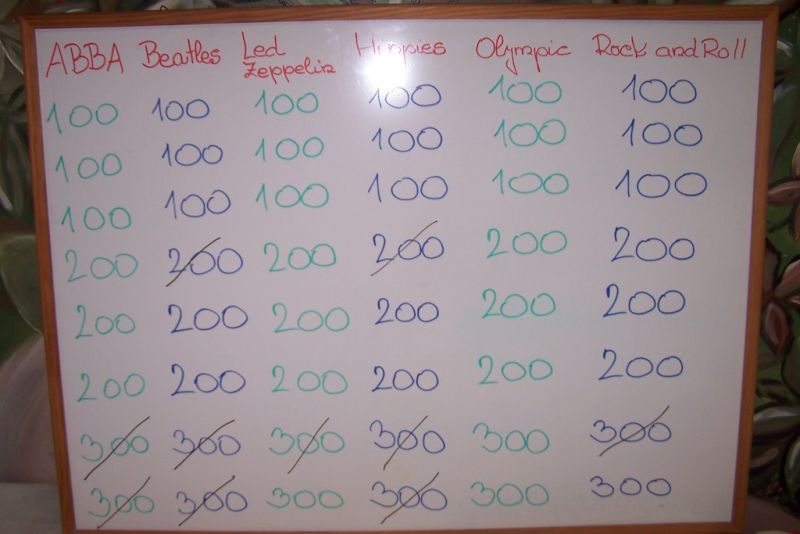 ABBA Beatles Led Zeppelin Hippies Olympic Rock and Roll
100 100 100 100 100 100
100 100 100 100 100 100
100 100 100 100 100 100
200 200 200 200 200 200
200 200 200 200 200 200
200 200 200 200 200 200
300 300 300 300 300 300
300 300 300 300 300 300